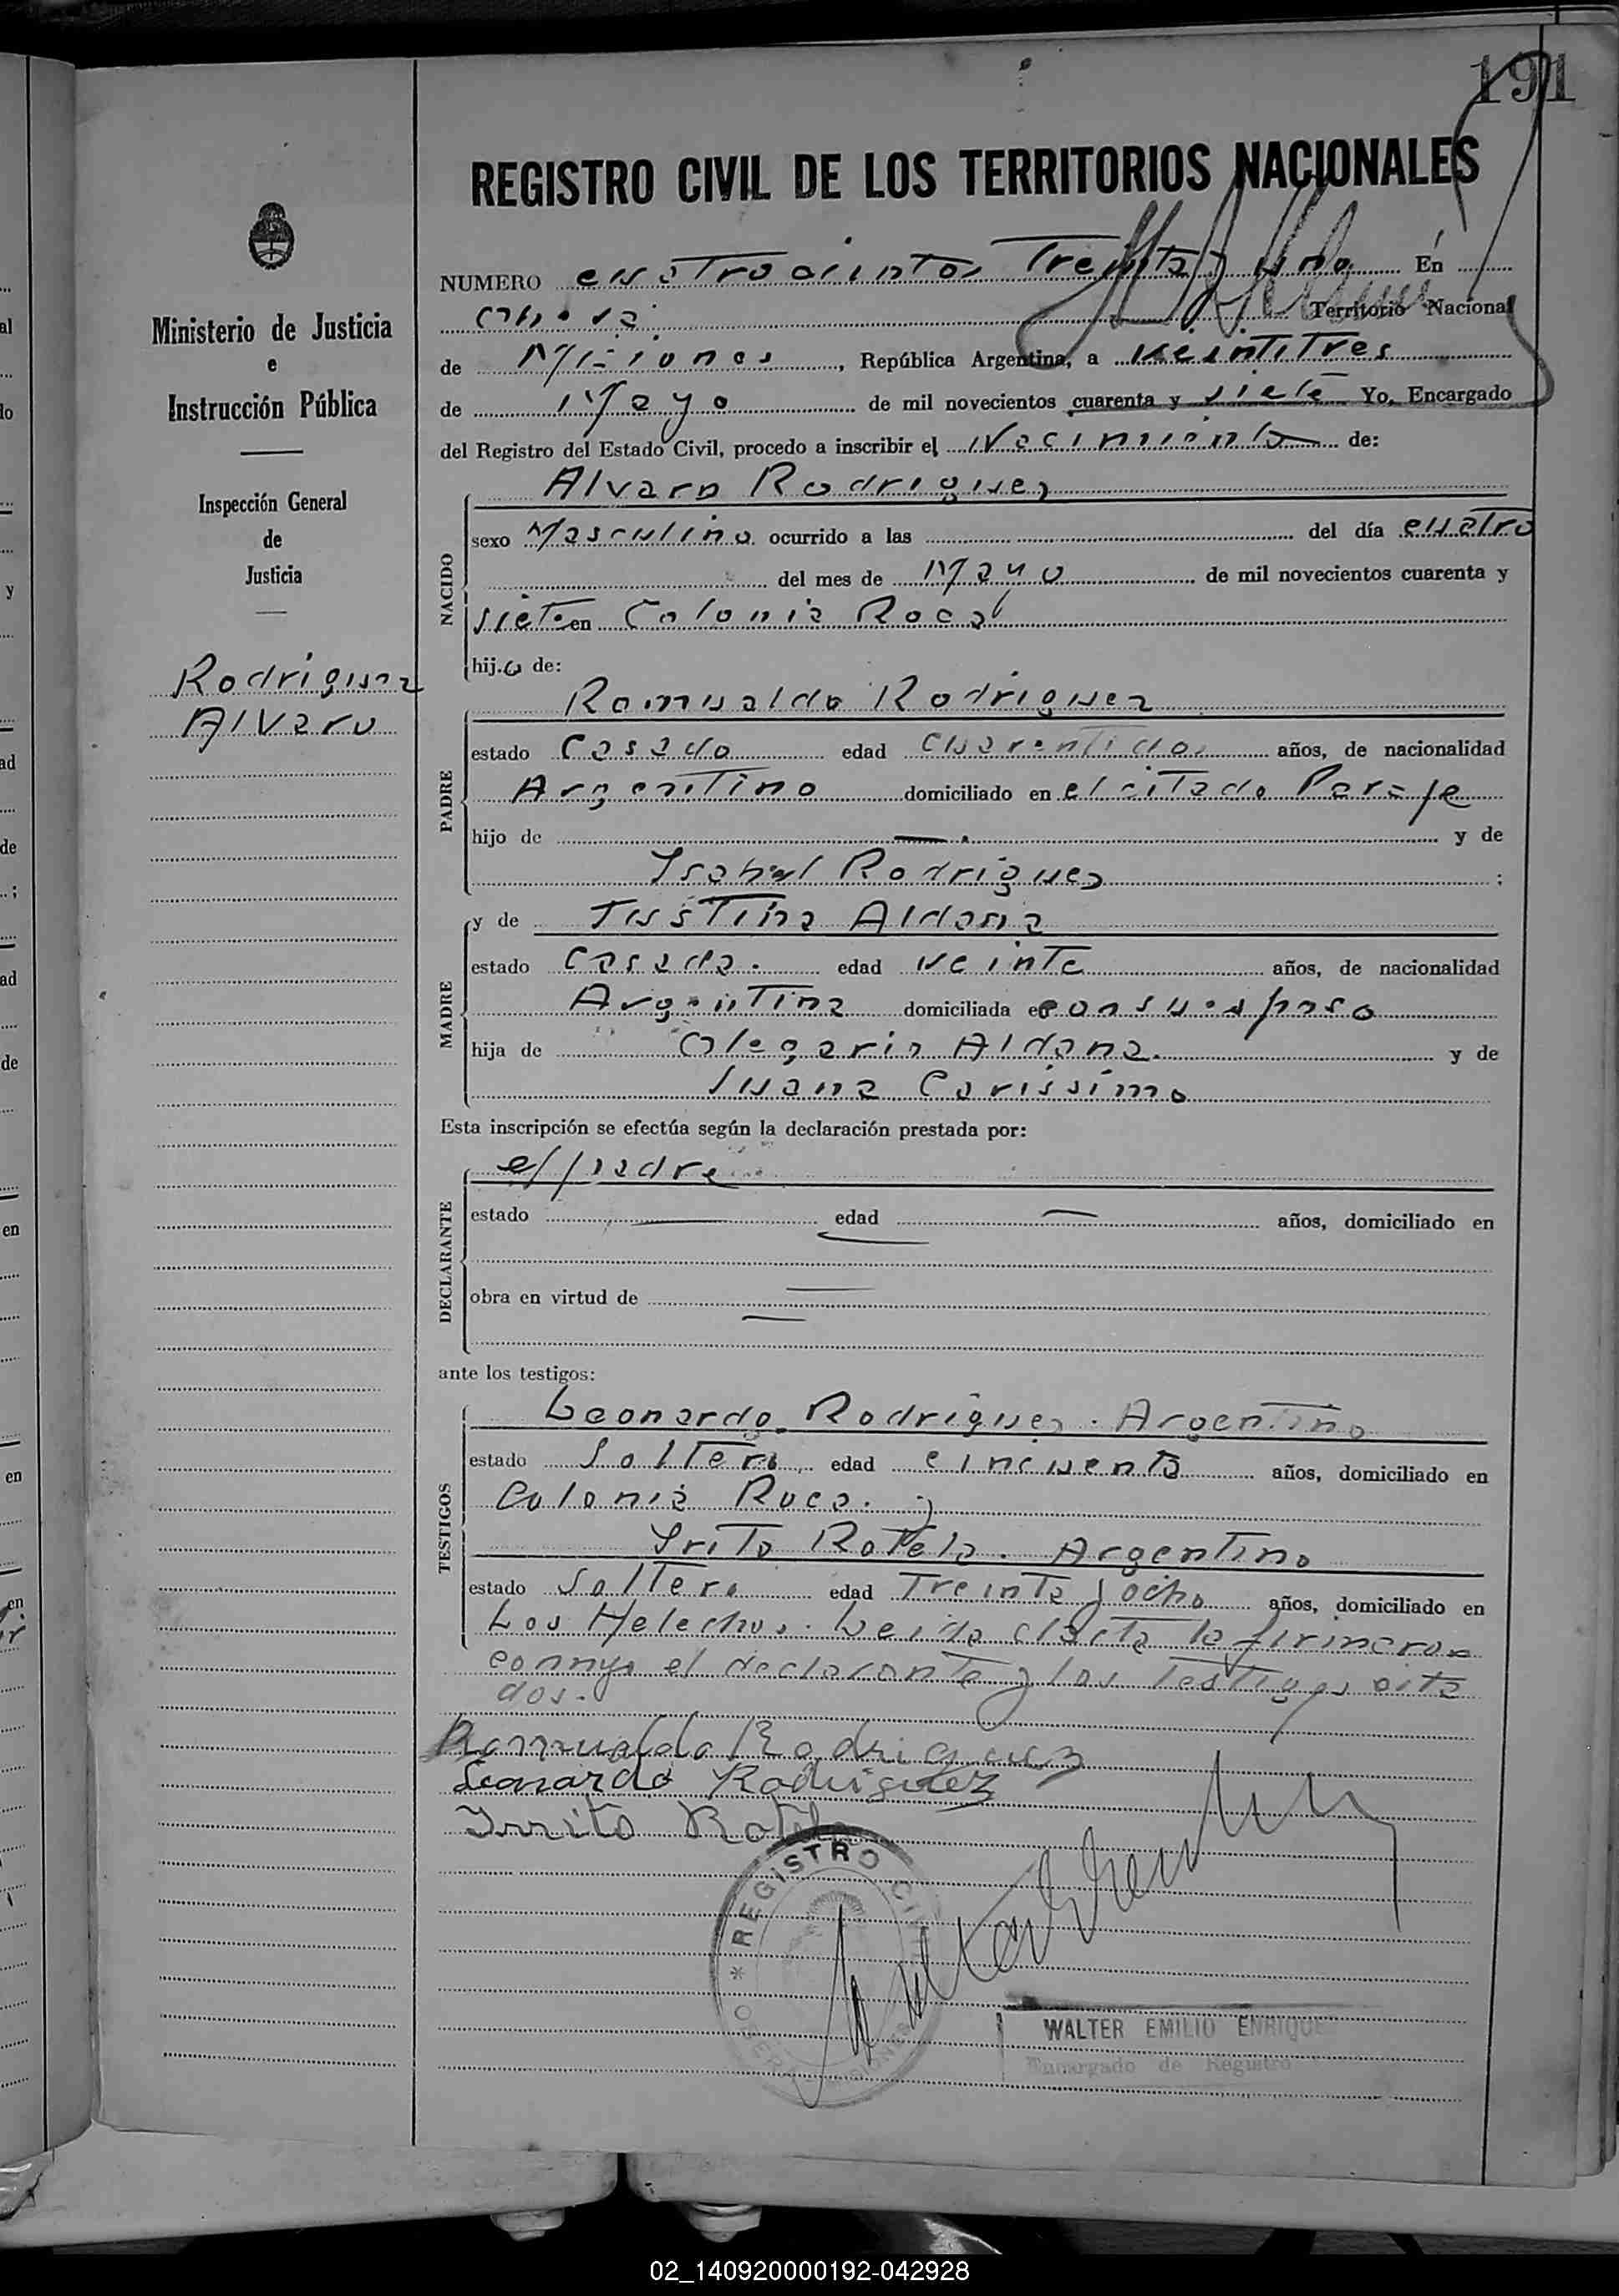 191
REGISTRO CIVIL DE LOS TERRITORIOS NACIONALES
NUMERO cuatrocientos Treinta y uno En
Territorio Nacional
de Misiones, República Argentina, a veintitres
de Mayo de mil novecientos cuarenta y siete Yo, Encargado
del Registro del Estado Civil, procedo a inscribir el Nacimiento de:
Ministerio de Justicia
e
Instrucción Pública
Inspección General
de
Justicia
Rodriguez
Alvaro
NACIDO
Alvaro Rodriguez
sexo Masculino ocurrido a las del día cuatro
del mes de Mayo de mil novecientos cuarenta y
siete en Colonia Roca
hij.o de:
PADRE
Romualdo Rodriguez
estado Casado edad cuarentidos años, de nacionalidad
Argentino domiciliado en el citado Paraje
hijo de — y de
Isabel Rodriguez ;
MADRE
y de Justina Aldana
estado Casada. edad veinte años, de nacionalidad
Argentina domiciliada con su esposo
hija de Olegario Aldana. y de
Juana Carissimo
Esta inscripción se efectúa según la declaración prestada por:
DECLARANTE
el padre
estado — edad — años, domiciliado en
obra en virtud de
ante los testigos:
TESTIGOS
Leonardo Rodriguez. Argentino
estado Soltero edad cincuenta años, domiciliado en
Colonia Roca. y
Irito Rotela. Argentino
estado Soltero edad Treinta y ocho años, domiciliado en
Los Helechos. Leida el acta la firmaron
conmigo el declarante y los Testigos cita
dos.
Romualdo Rodriguez
Leonardo Rodriguez
Irrito Rotela
REGISTRO CIVIL
WALTER EMILIO ENRIQUE
Encargado de Registro
02_140920000192-042928